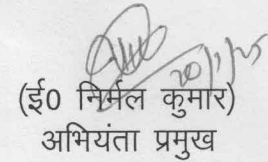 20/1/25
(ई0 निर्मल कुमार)
अभियंता प्रमुख